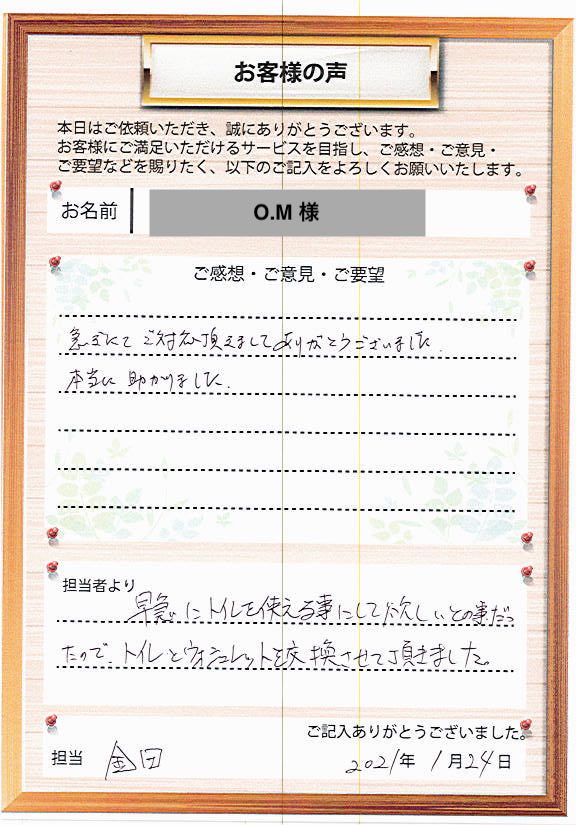 お客様の声
本日はご依頼いただき、誠にありがとうございます。
お客様にご満足いただけるサービスを目指し、ご感想・ご意見・
ご要望などを賜りたく、以下のご記入をよろしくお願いいたします。
お名前 O.M 様
ご感想・ご意見・ご要望
急きにて ご対応頂きましてありがとうございました.
本当に 助かりました.
担当者より
早急にトイレを使える事にして欲しいとの事だっ
たので、トイレとウォシュレットを交換させて頂きました。
ご記入ありがとうございました。
担当 金田 2021年 1月24日